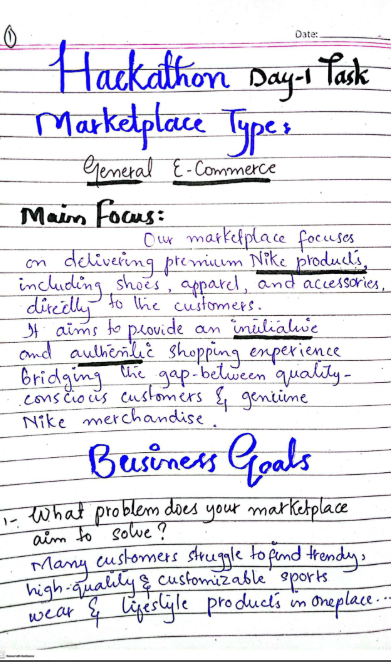 1
Date:
Hackathon Day-1 Task
Marketplace Type:
General E-Commerce
Main Focus:
Our marketplace focuses
on delivering premium Nike products,
including shoes, apparel, and accessories,
directly to the customers.
It aims to provide an initiative
and authentic shopping experience
bridging the gap-between quality-
conscious customers & genuine
Nike merchandise.
Business Goals
1- What problem does your marketplace
aim to solve?
Many customers struggle to find trendy,
high-quality & customizable sports
wear & lifestyle products in one place...